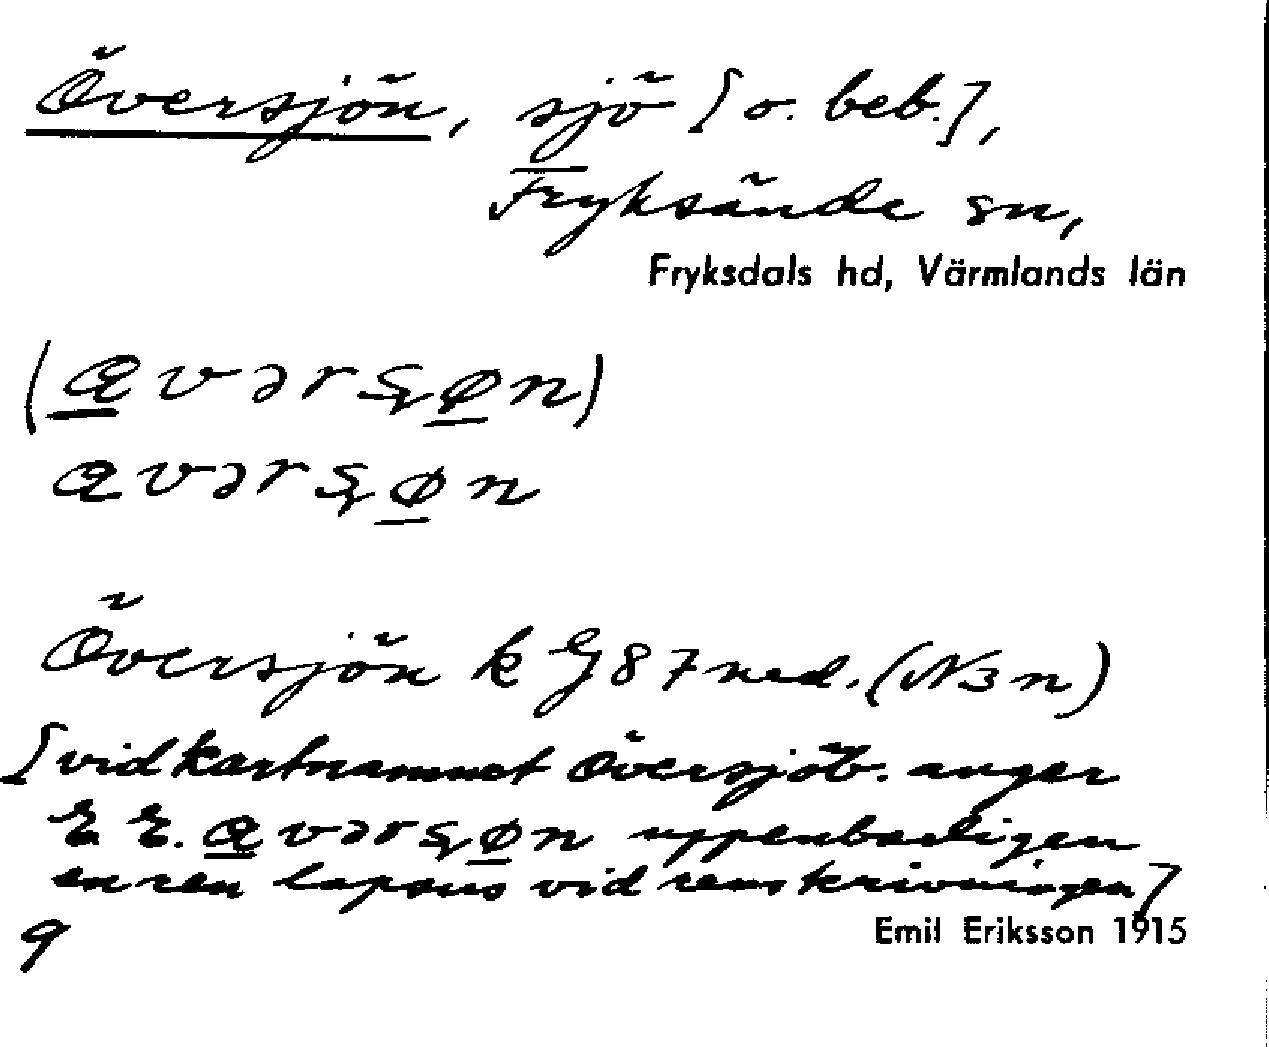 Översjön, sjö [o. beb.],
Fryksände sn,
Fryksdals hd, Värmlands län
Översjön k G 87 ned. (N3n)
[vid kartnamnet Översjöb. anger
E. E. uppenbarligen
en ren lapsus vid renskrivningen]
Emil Eriksson 1915
9